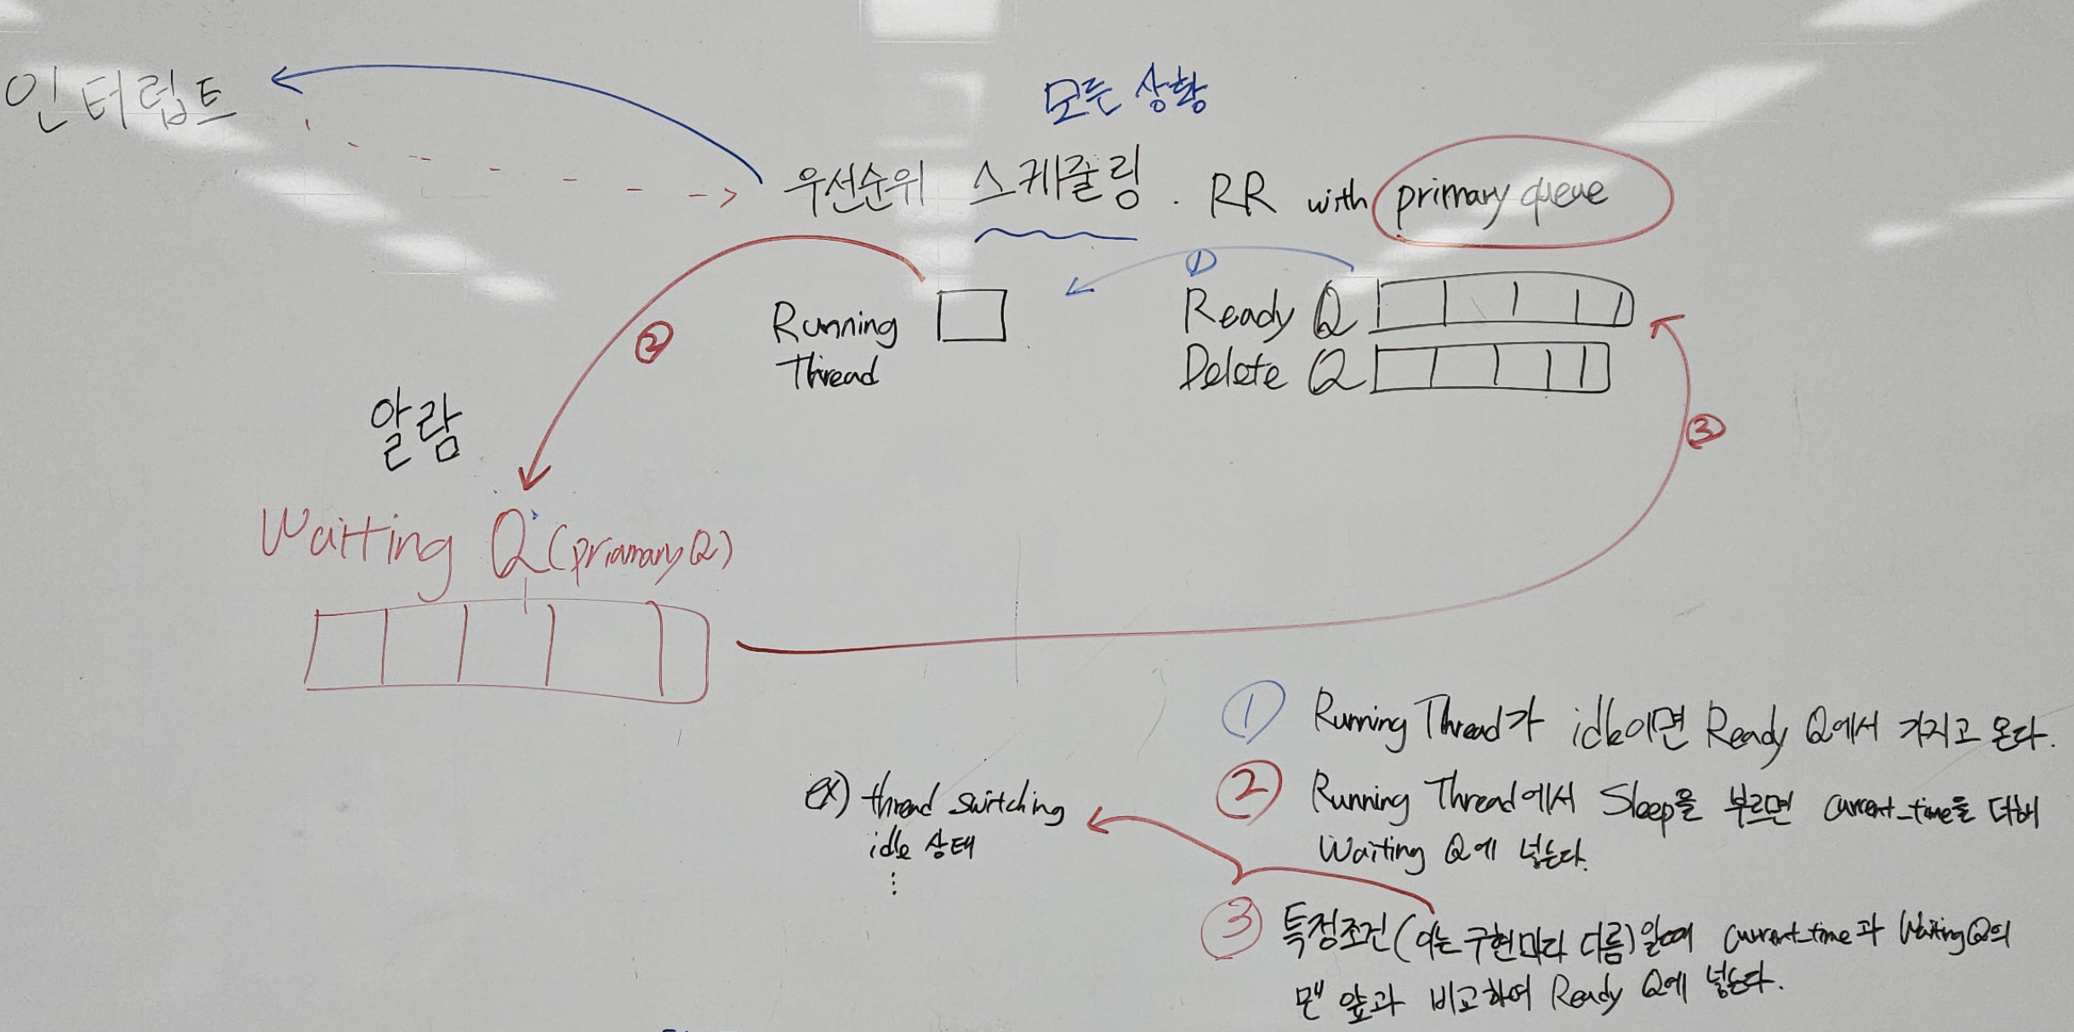 인터럽트
모든 상황
우선순위 스케줄링 . RR with primary queue
①
Running
Thread
Ready Q
Delete Q
②
③
알람
Waiting Q (priamary Q)
① Running Thread가 idle이면 Ready Q에서 가지고 온다.
② Running Thread에서 Sleep을 부르면 current_time을 더해
Waiting Q에 넣는다.
ex) thread switching
idle 상태
⋮
③ 특정조건(이는 구현마다 다름)일때 current_time과 Waiting Q의
맨 앞과 비교하여 Ready Q에 넣는다.